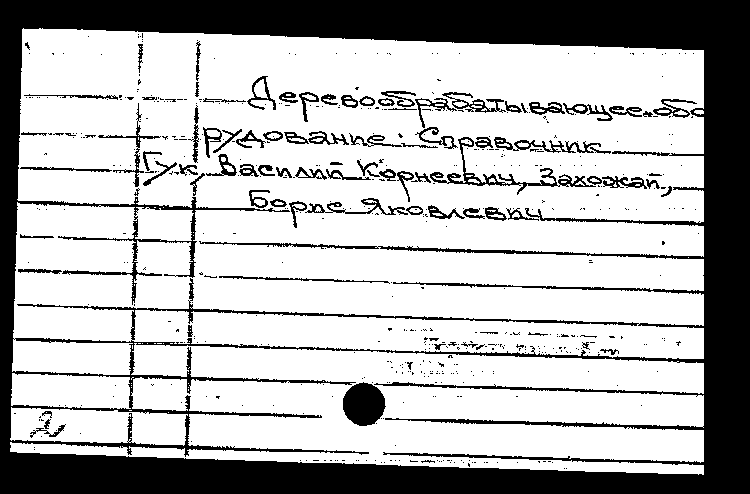 Деревообрабатывающее обо
рудование: Справочник
Гук, Василий Корнеевич, Захожай,
Борис Яковлевич
2